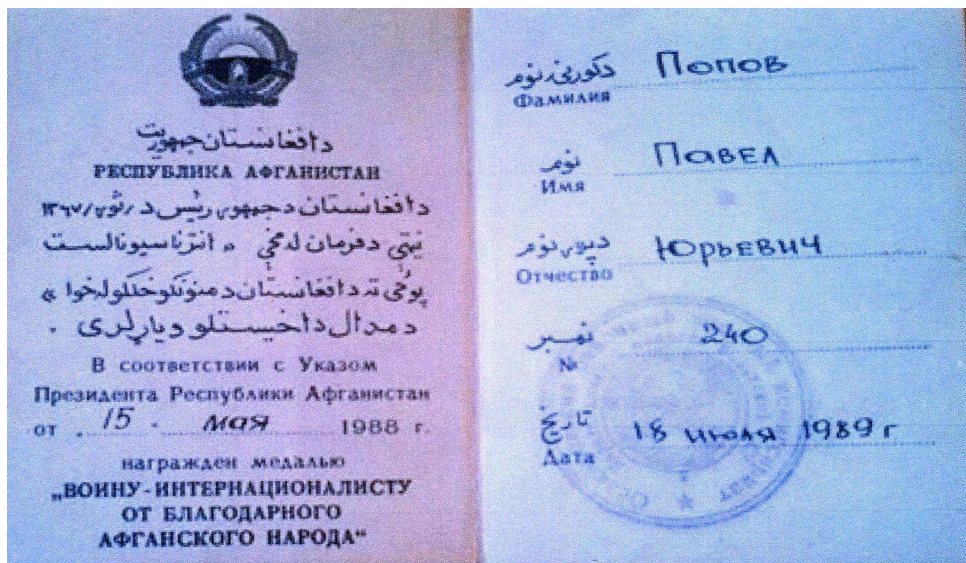 دافغانستان جمهوریت
РЕСПУБЛИКА АФГАНИСТАН
دافغانستان دجمهور رئیس د
نیټې دفرمان له مخې « انترناسیونالست
پوځي ته دافغانستان دمنونکو خلکو له خوا »
دمدال داخیستلو ویاړ لري .
В соответствии с Указом
Президента Республики Афганистан
от 15 мая 1988 г.
награжден медалью
„ВОИНУ-ИНТЕРНАЦИОНАЛИСТУ
ОТ БЛАГОДАРНОГО
АФГАНСКОГО НАРОДА“
دکورنۍ نوم Попов
Фамилия
نوم Павел
Имя
دپلار نوم Юрьевич
Отчество
نمبر 240
№
تاریخ 18 июля 1989 г
Дата